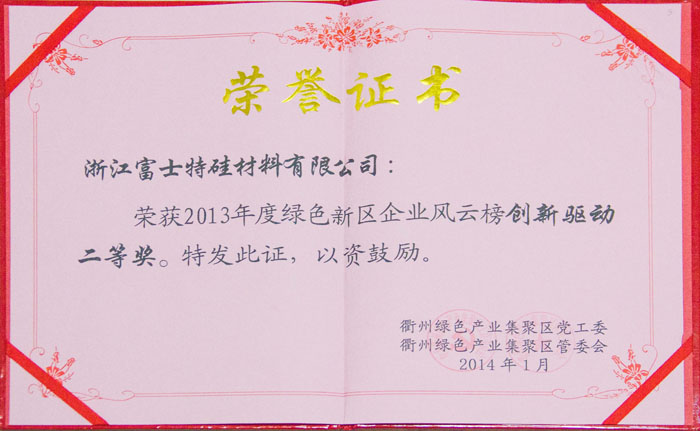 荣誉证书
浙江富士特硅材料有限公司：
荣获2013年度绿色新区企业风云榜创新驱动
二等奖。特发此证，以资鼓励。
衢州绿色产业集聚区党工委
衢州绿色产业集聚区管委会
2014年1月